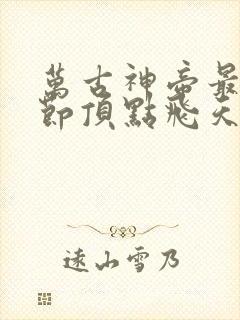 萬古神帝最
節頂點飛天
遠山雪乃